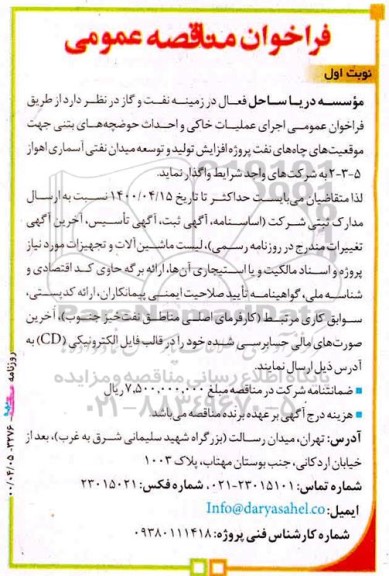 فراخوان مناقصه عمومی
نوبت اول
مؤسسه دریا ساحل فعال در زمینه نفت و گاز در نظر دارد از طریق
فراخوان عمومی اجرای عملیات خاکی و احداث حوضچه‌های بتنی جهت
موقعیت‌های چاه‌های نفت پروژه افزایش تولید و توسعه میدان نفتی آسماری اهواز
۵-۳-۲ به شرکت‌های واجد شرایط واگذار نماید.
لذا متقاضیان می‌بایست حداکثر تا تاریخ ۱۴۰۰/۰۴/۱۵ نسبت به ارسال
مدارک ثبتی شرکت (اساسنامه، آگهی ثبت، آگهی تأسیس، آخرین آگهی
تغییرات مندرج در روزنامه رسمی)، لیست ماشین آلات و تجهیزات مورد نیاز
پروژه و اسناد مالکیت و یا استیجاری آن‌ها، ارائه برگه حاوی کد اقتصادی و
شناسه ملی، گواهینامه تأیید صلاحیت ایمنی پیمانکاران، ارائه کد بستی،
سوابق کاری مرتبط (کارفرمای اصلی مناطق نفت‌خیز جنوب)، آخرین
صورت‌های مالی حسابرسی شده خود را در قالب فایل الکترونیکی (CD) به
آدرس ذیل ارسال نمایند.
پایگاه اطلاع رسانی مناقصه و مزایده
ضمانتنامه شرکت در مناقصه مبلغ ۷,۵۰۰,۰۰۰,۰۰۰ ریال
۰۲۱-۸۸۳۴۹۶۷۰-۵
هزینه درج آگهی بر عهده برنده مناقصه می‌باشد.
آدرس: تهران، میدان رسالت (بزرگراه شهید سلیمانی شرق به غرب)، بعد از
خیابان اردکانی، جنب بوستان مهتاب، پلاک ۱۰۰۳
شماره تماس: ۲۳۰۱۵۱۰۱-۰۲۱، شماره فکس: ۲۳۰۱۵۰۲۱
ایمیل: Info@daryasahel.co
شماره کارشناس فنی پروژه: ۰۹۳۸۰۱۱۱۴۱۸
روزنامه ۳۲۷۶ ۰۰/۰۴/۰۵